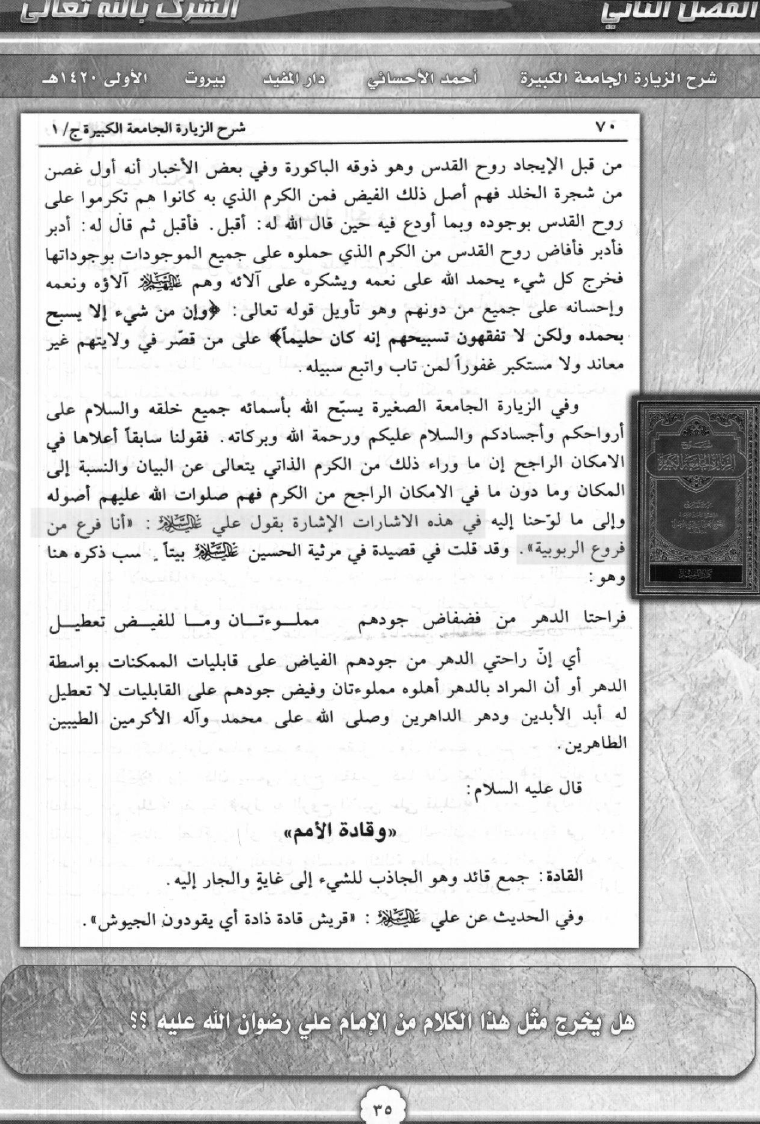 الفصل الثاني
الشرك بالله تعالى
شرح الزيارة الجامعة الكبيرة أحمد الأحسائي دار المفيد بيروت الأولى ١٤٢٠هـ
٧٠ شرح الزيارة الجامعة الكبيرة ج/١
من قبل الإيجاد روح القدس وهو ذوقه الباكورة وفي بعض الأخبار أنه أول غصن
من شجرة الخلد فهم أصل ذلك الفيض فمن الكرم الذي به كانوا هم تكرموا على
روح القدس بوجوده وبما أودع فيه حين قال الله له: أقبل. فأقبل ثم قال له: أدبر
فأدبر فأفاض روح القدس من الكرم الذي حملوه على جميع الموجودات بوجوداتها
فخرج كل شيء يحمد الله على نعمه ويشكره على آلائه وهم عليهم السلام آلاؤه ونعمه
وإحسانه على جميع من دونهم وهو تأويل قوله تعالى: ﴿وإن من شيء إلا يسبح
بحمده ولكن لا تفقهون تسبيحهم إنه كان حليماً﴾ على من قصّر في ولايتهم غير
معاند ولا مستكبر غفوراً لمن تاب واتبع سبيله.
وفي الزيارة الجامعة الصغيرة يسبّح الله بأسمائه جميع خلقه والسلام على
أرواحكم وأجسادكم والسلام عليكم ورحمة الله وبركاته. فقولنا سابقاً أعلاها في
الامكان الراجح إن ما وراء ذلك من الكرم الذاتي يتعالى عن البيان والنسبة إلى
المكان وما دون ما في الامكان الراجح من الكرم فهم صلوات الله عليهم أصوله
وإلى ما لوّحنا إليه في هذه الاشارات الإشارة بقول علي عليه السلام: «أنا فرع من
فروع الربوبية». وقد قلت في قصيدة في مرثية الحسين عليه السلام بيتاً. سب ذكره هنا
وهو:
فراحتا الدهر من فضفاض جودهم مملـوءتـان ومـا للفيـض تعطيـل
أي إنّ راحتي الدهر من جودهم الفياض على قابليات الممكنات بواسطة
الدهر أو أن المراد بالدهر أهلوه مملوءتان وفيض جودهم على القابليات لا تعطيل
له أبد الأبدين ودهر الداهرين وصلى الله على محمد وآله الأكرمين الطيبين
الطاهرين.
قال عليه السلام:
«وقادة الأمم»
القادة: جمع قائد وهو الجاذب للشيء إلى غايةٍ والجار إليه.
وفي الحديث عن علي عليه السلام: «قريش قادة ذادة أي يقودون الجيوش».
هل يخرج مثل هذا الكلام من الإمام علي رضوان الله عليه ؟؟
٣٥